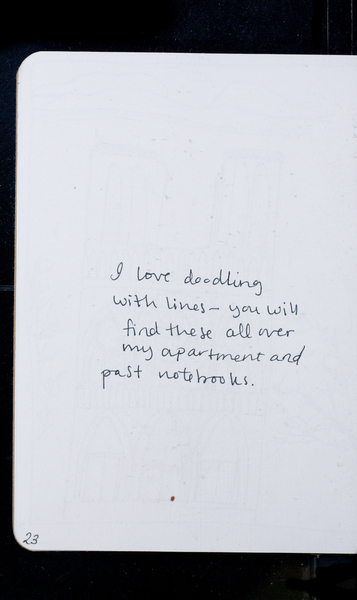 I love doodling
with lines – you will
find these all over
my apartment and
past notebooks.
23